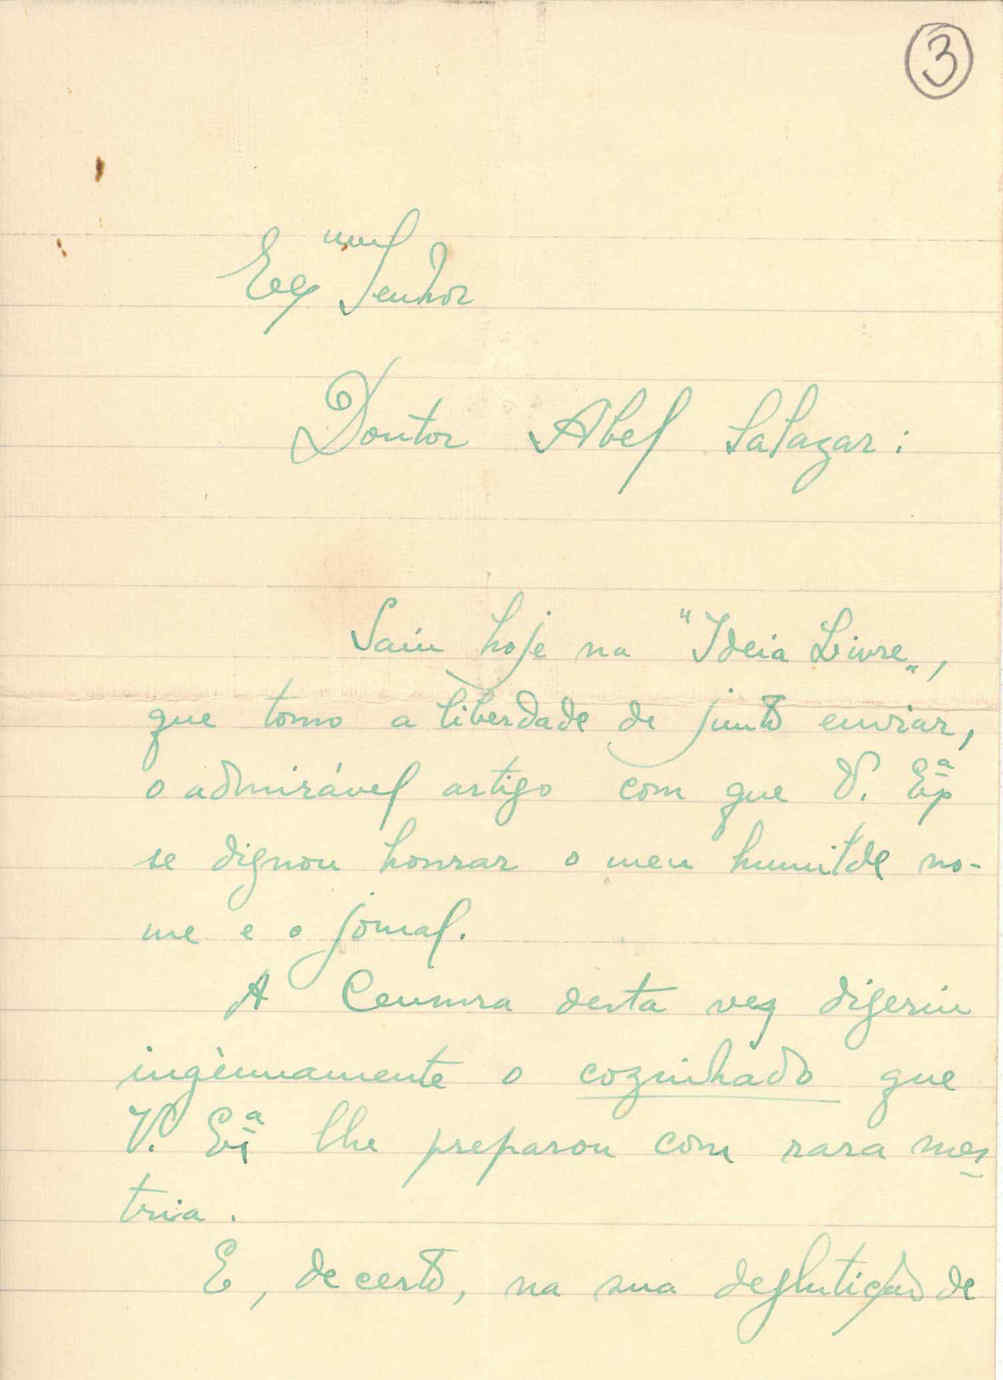 3
Exmº Senhor
Doutor Abel Salazar:
Saíu hoje na "Ideia Livre",
que tomo a liberdade de junto enviar,
o admirável artigo com que V. Exª
se dignou honrar o meu humilde no-
me e o jornal.
A Censura desta vez digeriu
ingènuamente o cozinhado que
V. Exª lhe preparou com rara mes-
tria.
E, decerto, na sua deglutição de